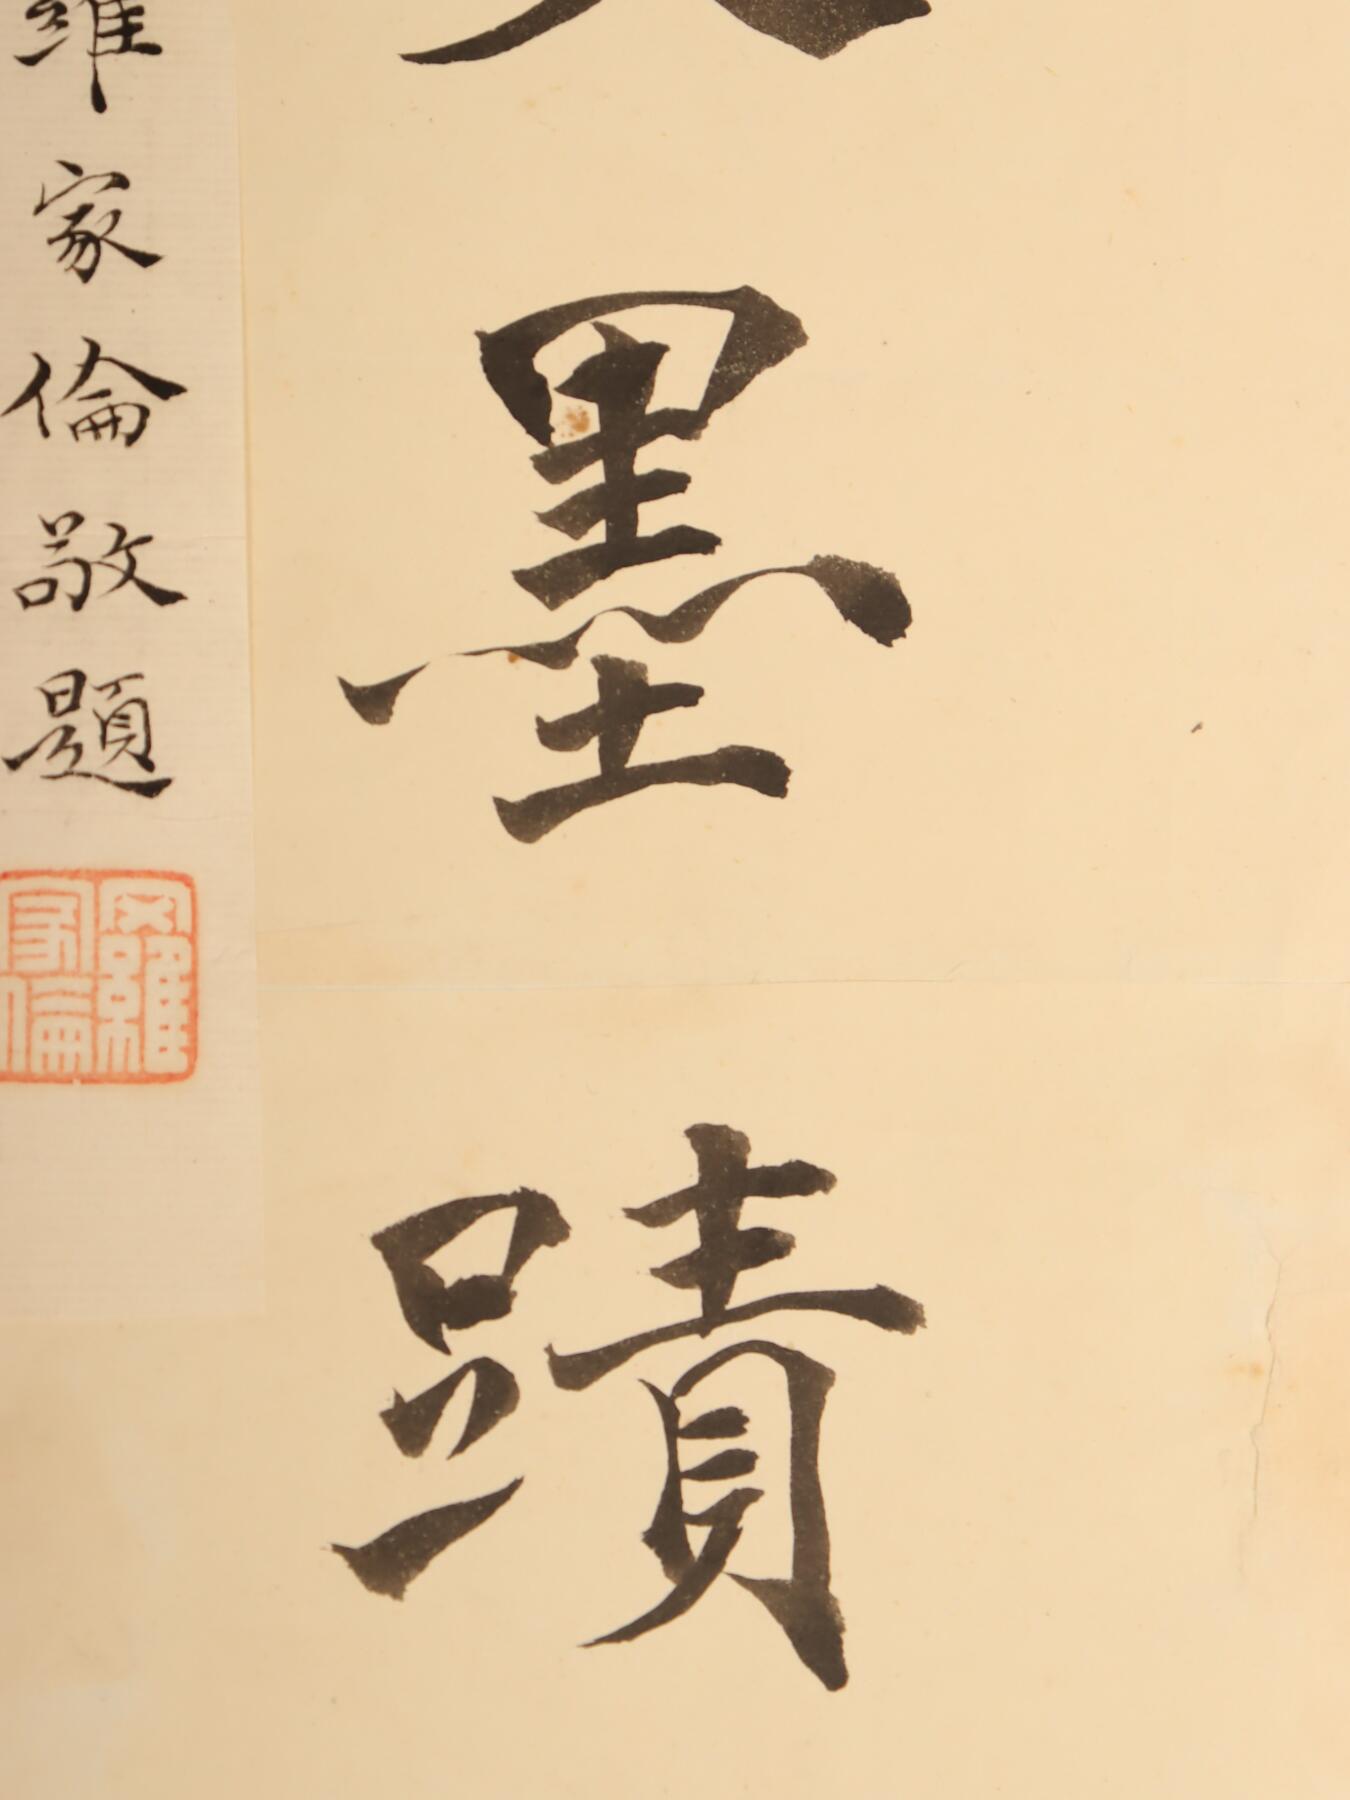 墨蹟
羅家倫敬題
羅家倫